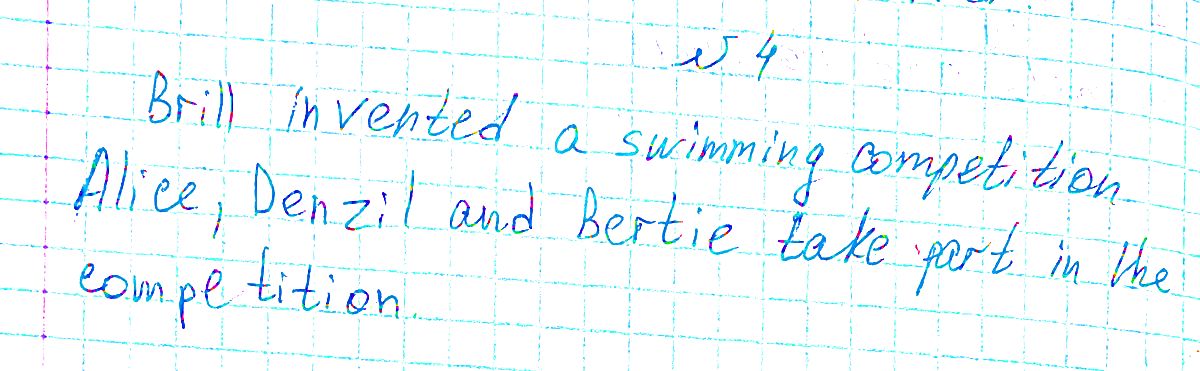 № 4
Brill invented a swimming competition
Alice, Denzil and Bertie take part in the
competition.